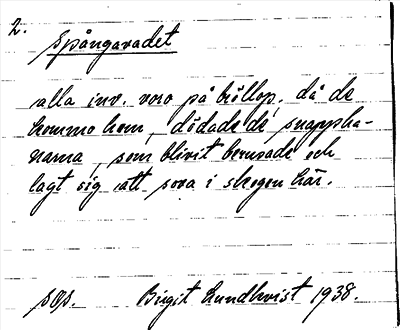 2.
Spångavadet
alla inv. voro på bröllop, då de
kommo hem, dödade de snappha-
narna, som blivit berusade och
lagt sig att sova i skogen här.
sgs. Birgit Lundkvist 1938.